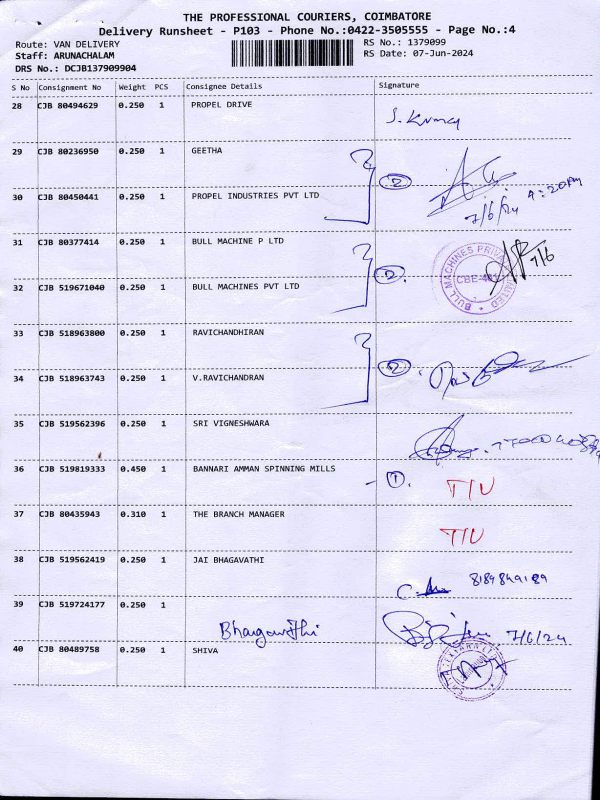 THE PROFESSIONAL COURIERS, COIMBATORE
Delivery Runsheet - P103 - Phone No.:0422-3505555 - Page No.:4
Route: VAN DELIVERY
RS No.: 1379099
Staff: ARUNACHALAM
RS Date: 07-Jun-2024
DRS No.: DCJB137909904
S No Consignment No Weight PCS Consignee Details Signature
28 CJB 80494629 0.250 1 PROPEL DRIVE
S. Kumar
29 CJB 80236950 0.250 1 GEETHA
2
4:20pm
7/6/24
30 CJB 80450441 0.250 1 PROPEL INDUSTRIES PVT LTD
31 CJB 80377414 0.250 1 BULL MACHINE P LTD
2
BULL MACHINES PRIVATE LIMITED
7/6
32 CJB 519671040 0.250 1 BULL MACHINES PVT LTD
33 CJB 518963800 0.250 1 RAVICHANDHIRAN
2
34 CJB 518963743 0.250 1 V.RAVICHANDRAN
35 CJB 519562396 0.250 1 SRI VIGNESHWARA
36 CJB 519819333 0.450 1 BANNARI AMMAN SPINNING MILLS
1
T/U
37 CJB 80435943 0.310 1 THE BRANCH MANAGER
T/U
38 CJB 519562419 0.250 1 JAI BHAGAVATHI
39 CJB 519724177 0.250 1
7/6/24
40 CJB 80489758 0.250 1 SHIVA